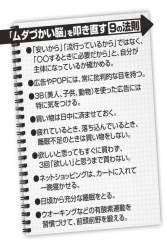 「ムダづかい脳」を叩き直す9の法則
●「安いから」「流行っているから」ではなく、
「〇〇するときに必要だから」と、自分が
主体になっているか確かめる。
●広告やPOPには、常に批判的な目を持つ。
●3B(美人、子供、動物)を使った広告には
特に気をつける。
●買い物は日中に済ませておく。
●疲れているとき、落ち込んでいるとき、
睡眠不足のときは買い物をしない。
●欲しいと思ってもすぐに買わず、
3回「欲しい」と思うまで買わない。
●ネットショッピングは、カートに入れて
一晩寝かせる。
●日頃から充分な睡眠をとる。
●ウオーキングなどの有酸素運動を
習慣づけて、前頭前野を鍛える。